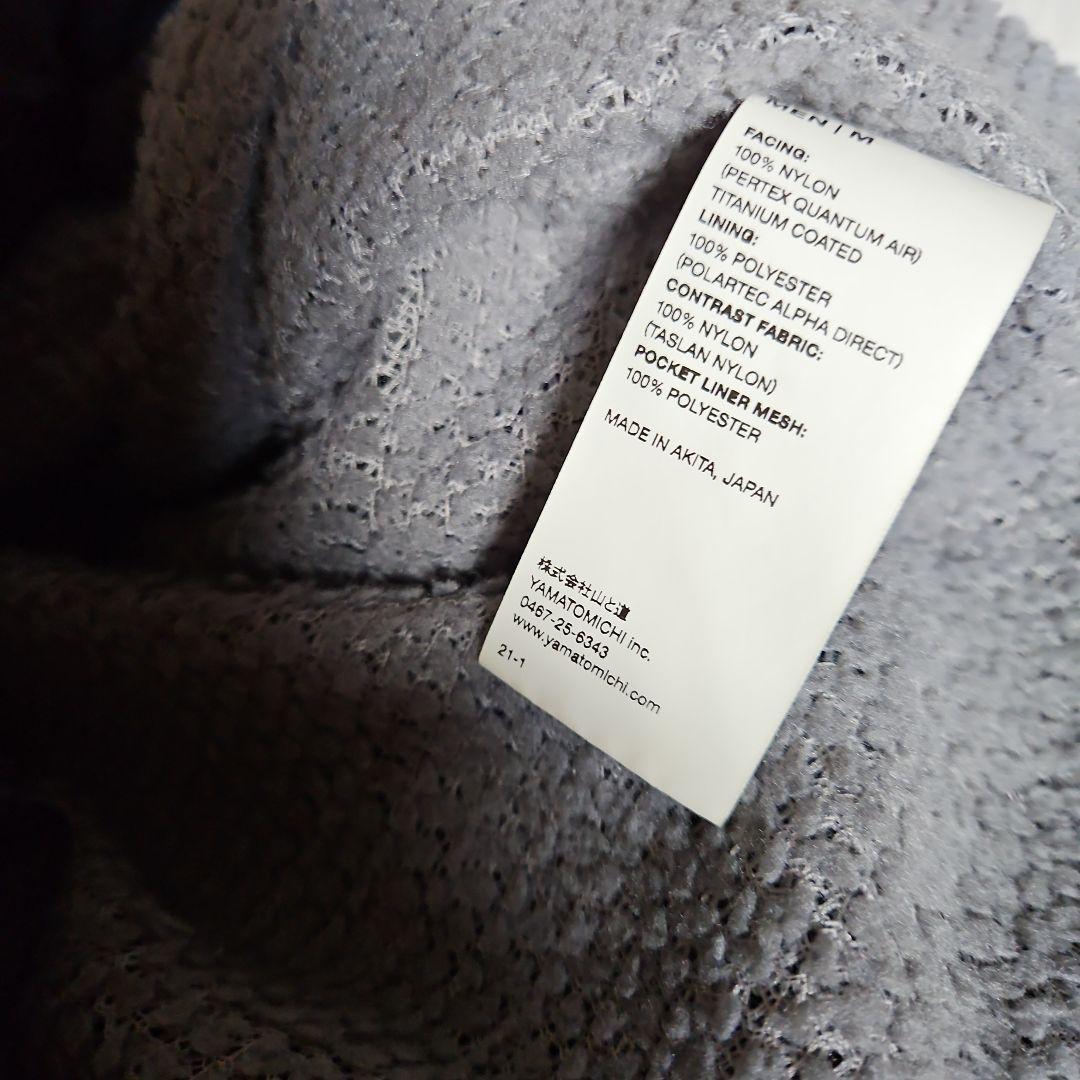 MEN | M
FACING:
100% NYLON
(PERTEX QUANTUM AIR)
TITANIUM COATED
LINING:
100% POLYESTER
(POLARTEC ALPHA DIRECT)
CONTRAST FABRIC:
100% NYLON
(TASLAN NYLON)
POCKET LINER MESH:
100% POLYESTER
MADE IN AKITA, JAPAN
株式会社山と道
YAMATOMICHI inc.
0467-25-6343
www.yamatomichi.com
21-1